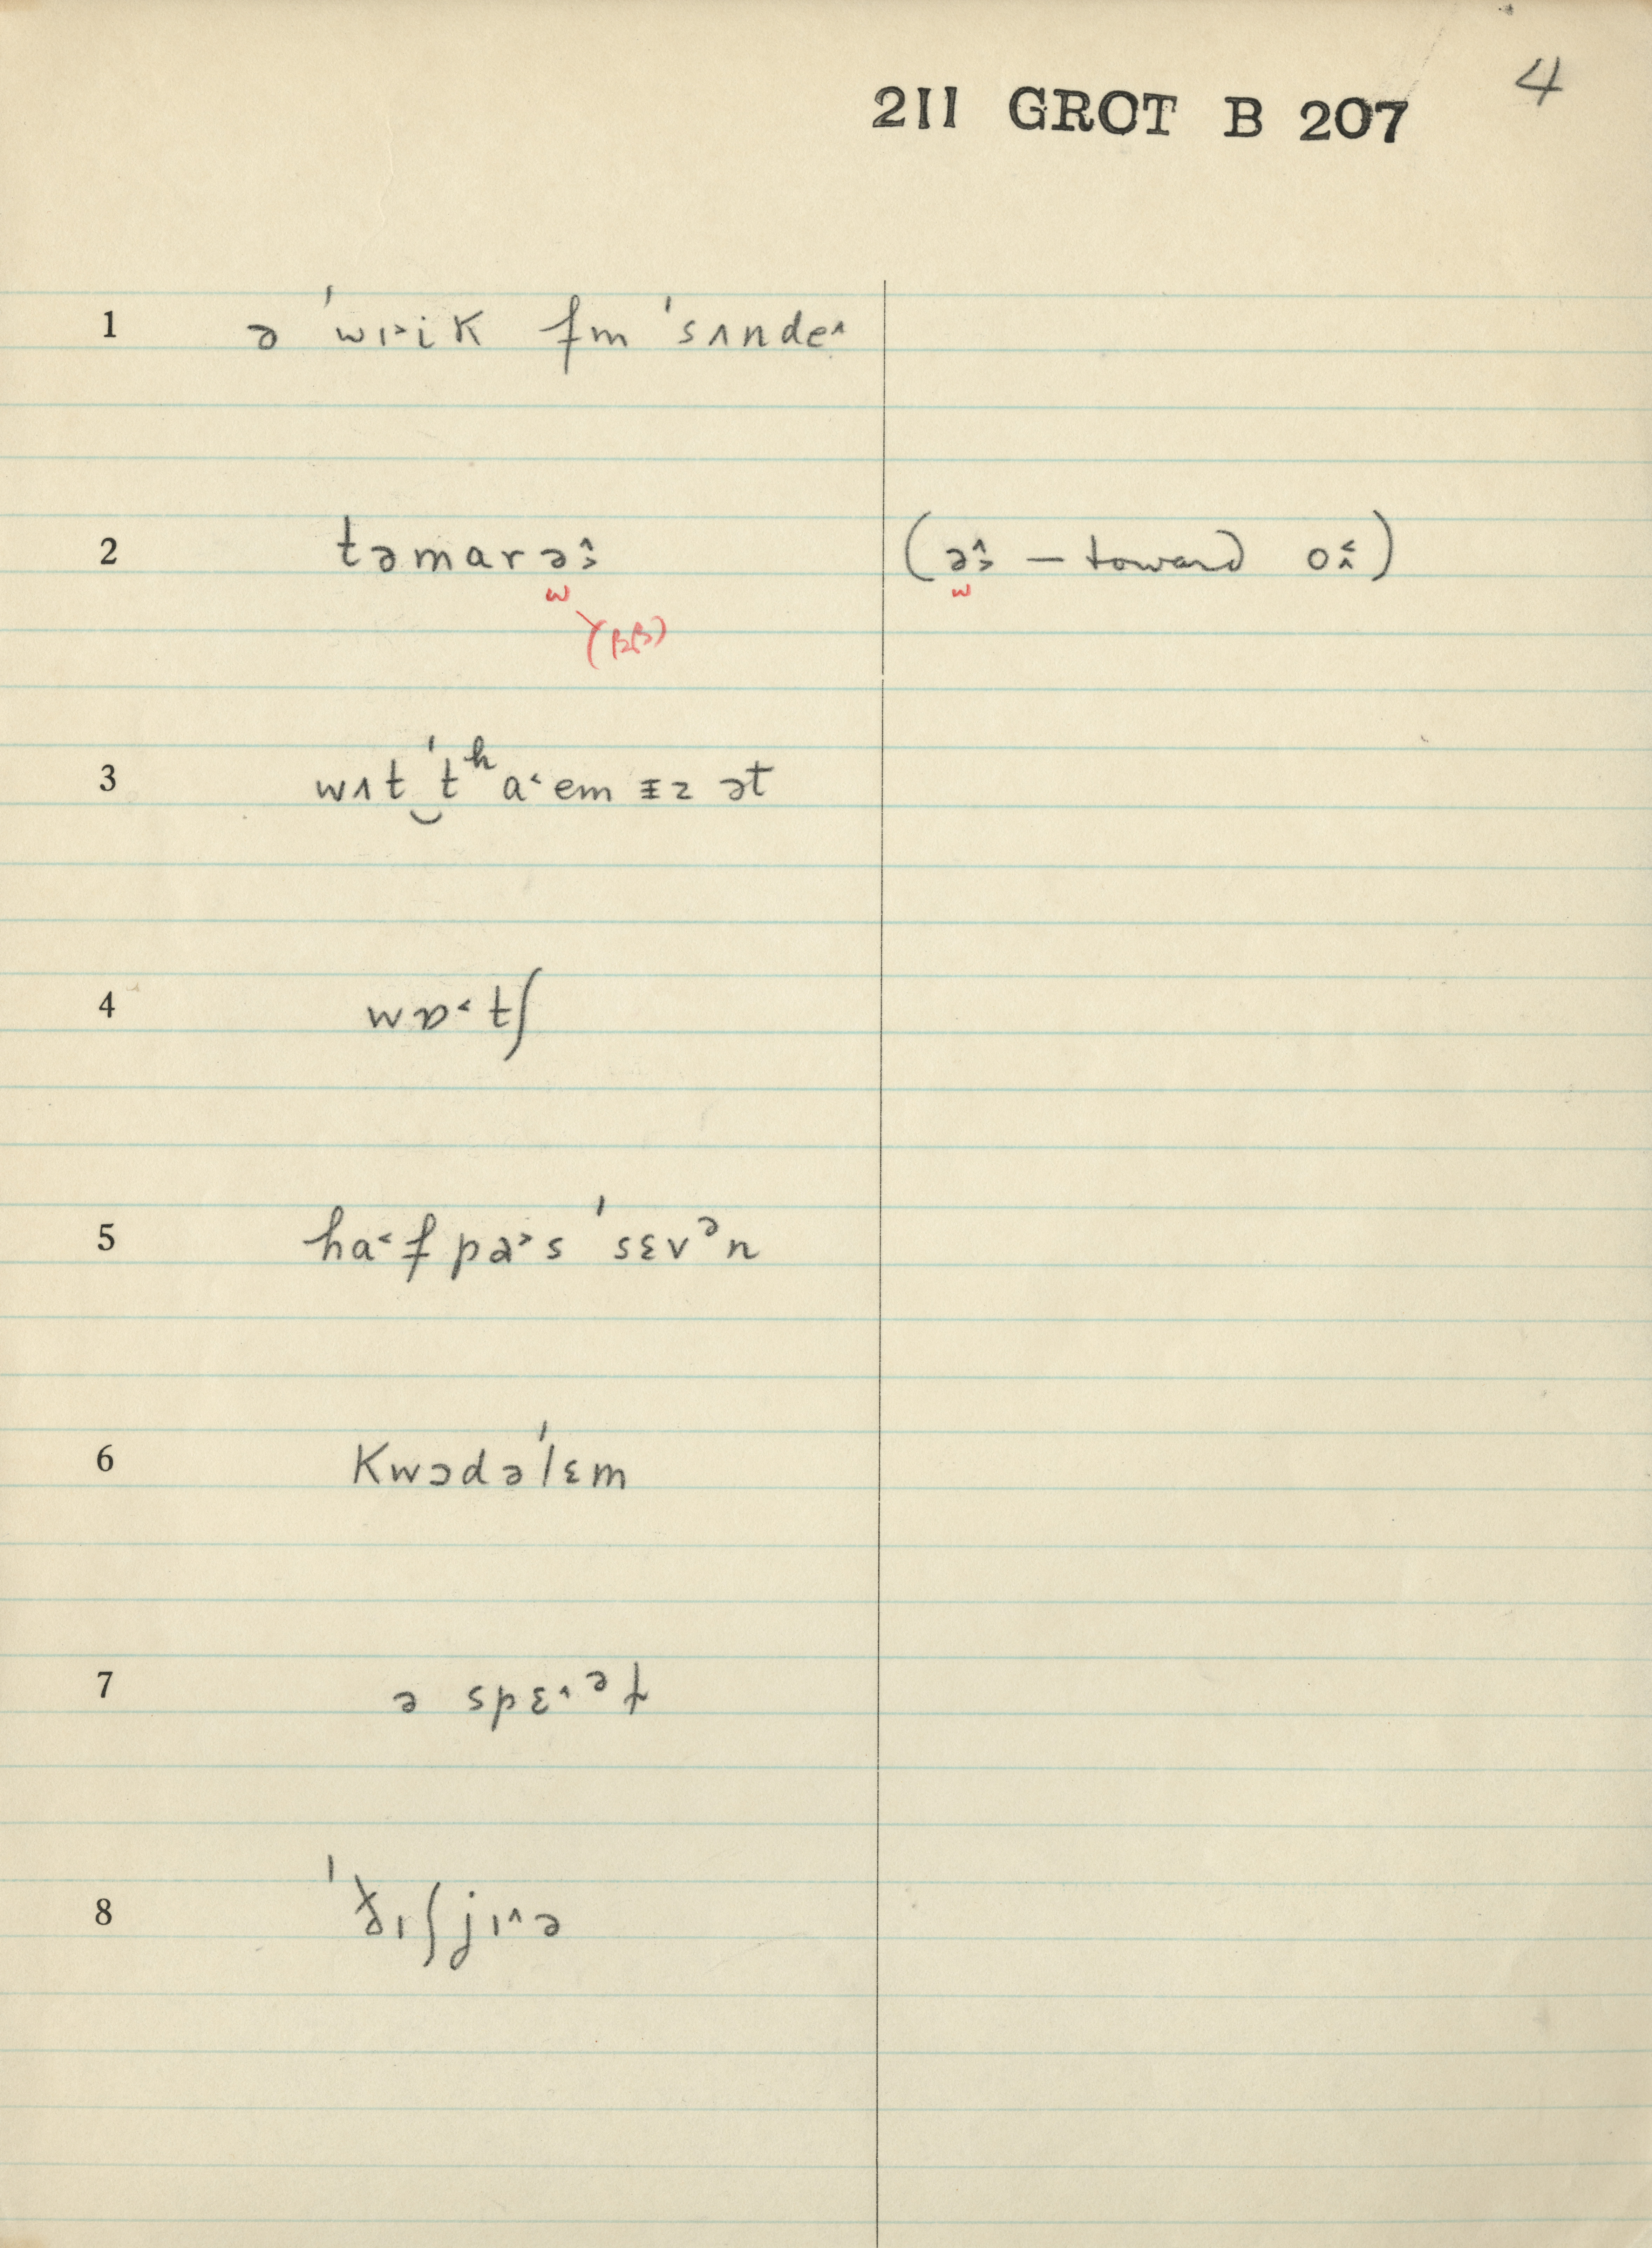 4
211 GROT B 207
1 ə ˈwɪ˃ik fm ˈsʌnde˄
2 təmarə˄˃ (ə˄˃ — toward o˂˄)
w w
(ββ)
3 wʌt‿ˈtʰa˂em ᵻz ət
4 wɒ˂tʃ
5 ha˂f pa˃s ˈsɛvᵊn
6 kwɔdəˈlɛm
7 ə spɛ˄ᵊt
8 ˈðɪʃjɪ˄ə